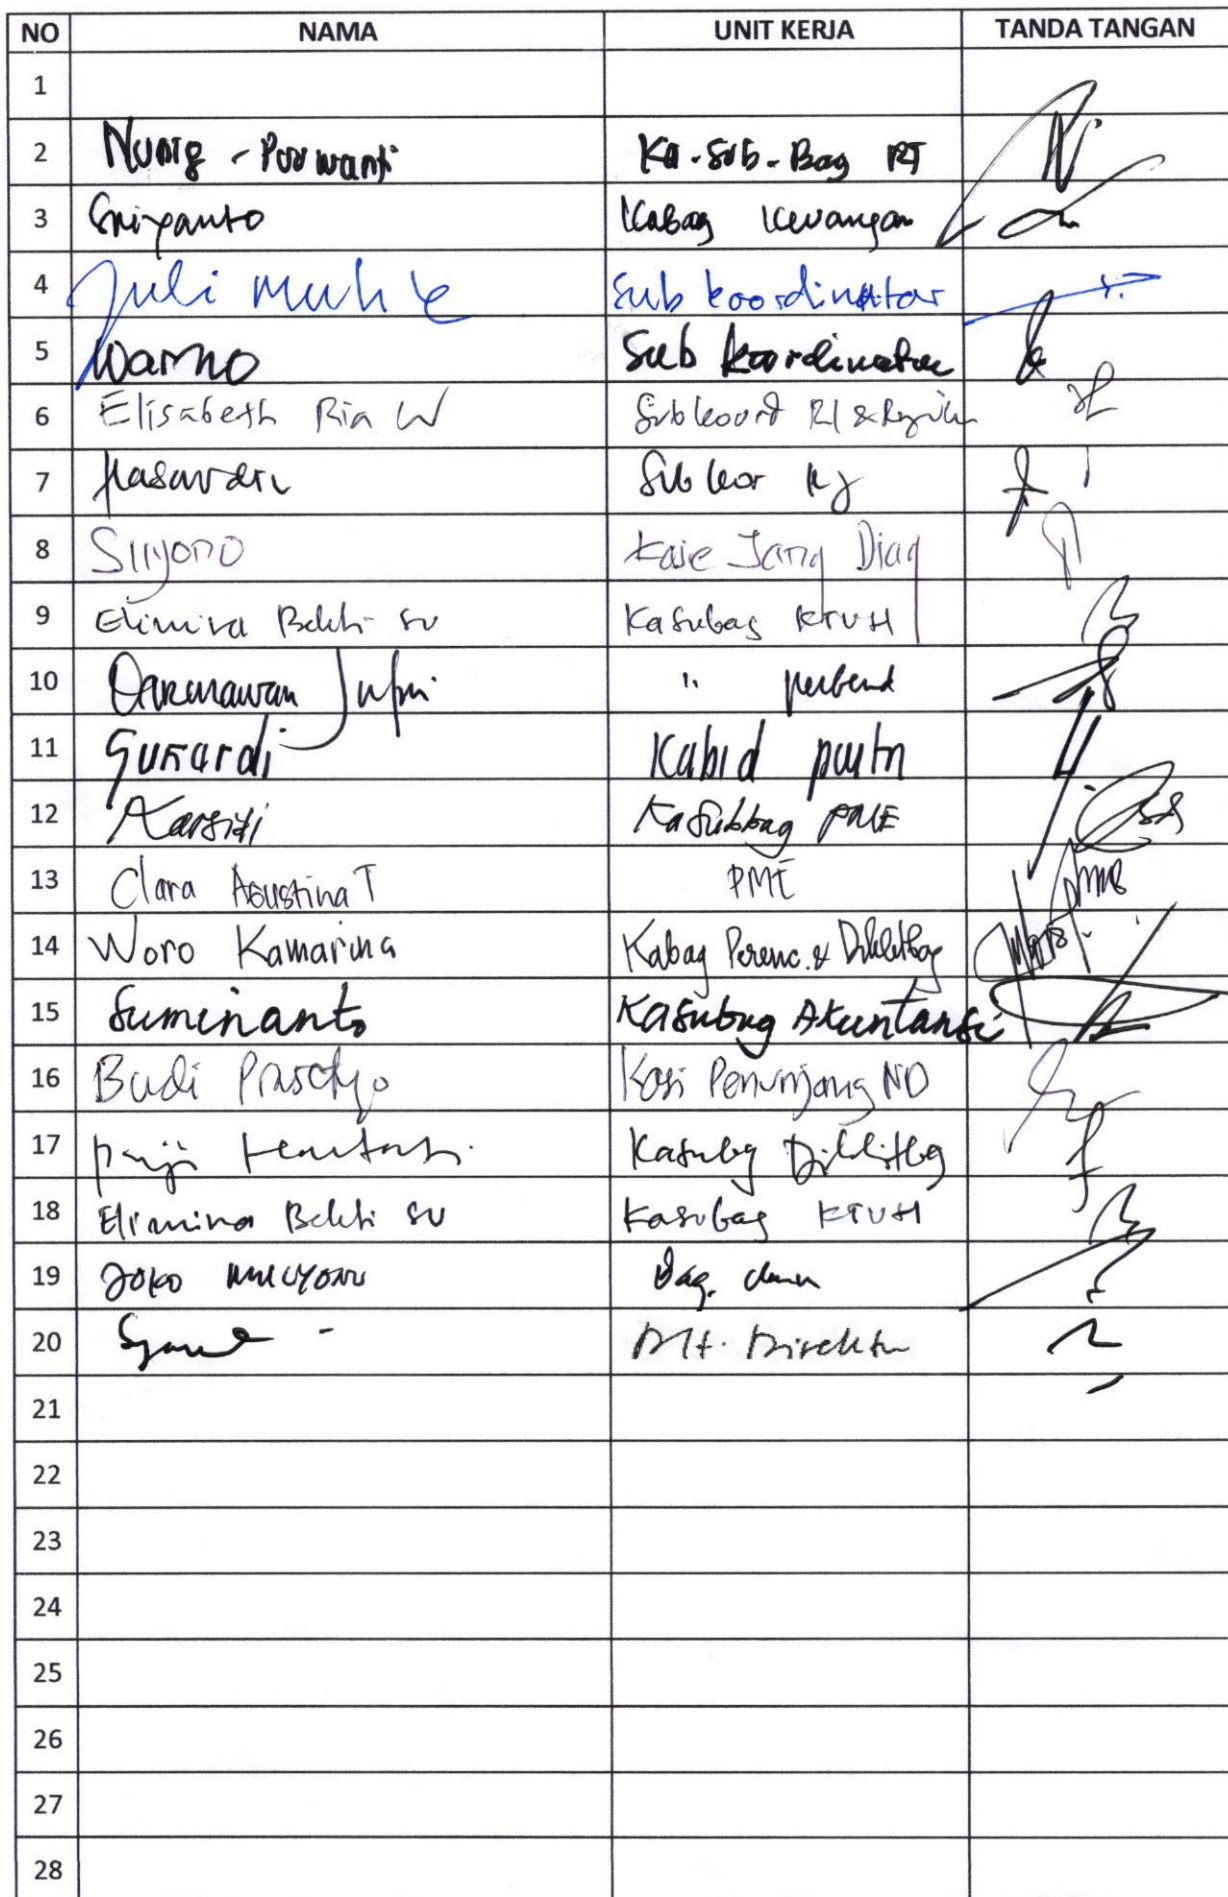 NO NAMA UNIT KERJA TANDA TANGAN
1
2 Nunig - Purwanti Ka-Sub-Bag RT
3 Sriyanto Kabag Keuangan
4 Juli Sub koordinator
5 Warno Sub koordinator
6 Elisabeth Ria W Subkoord RI &
7 Sub kor
8 Suyono Kasie Jang Diag
9 Elimina Bekti SU Kasubag KTUH
10 Darmawan " perbend
11 Gunardi Kabid
12 Karsidi Kasubbag PME
13 Clara Agustina T PME
14 Woro Kamarina Kabag Perenc. & Diklitbag
15 Suminanto Kasubag Akuntansi
16 Budi Prasetyo Kasi Penunjang ND
17 Kasubg Diklitbg
18 Elimina Bekti SU Kasubag KTUH
19 Joko Mulyono Bag.
20 Plt. Direktur
21
22
23
24
25
26
27
28